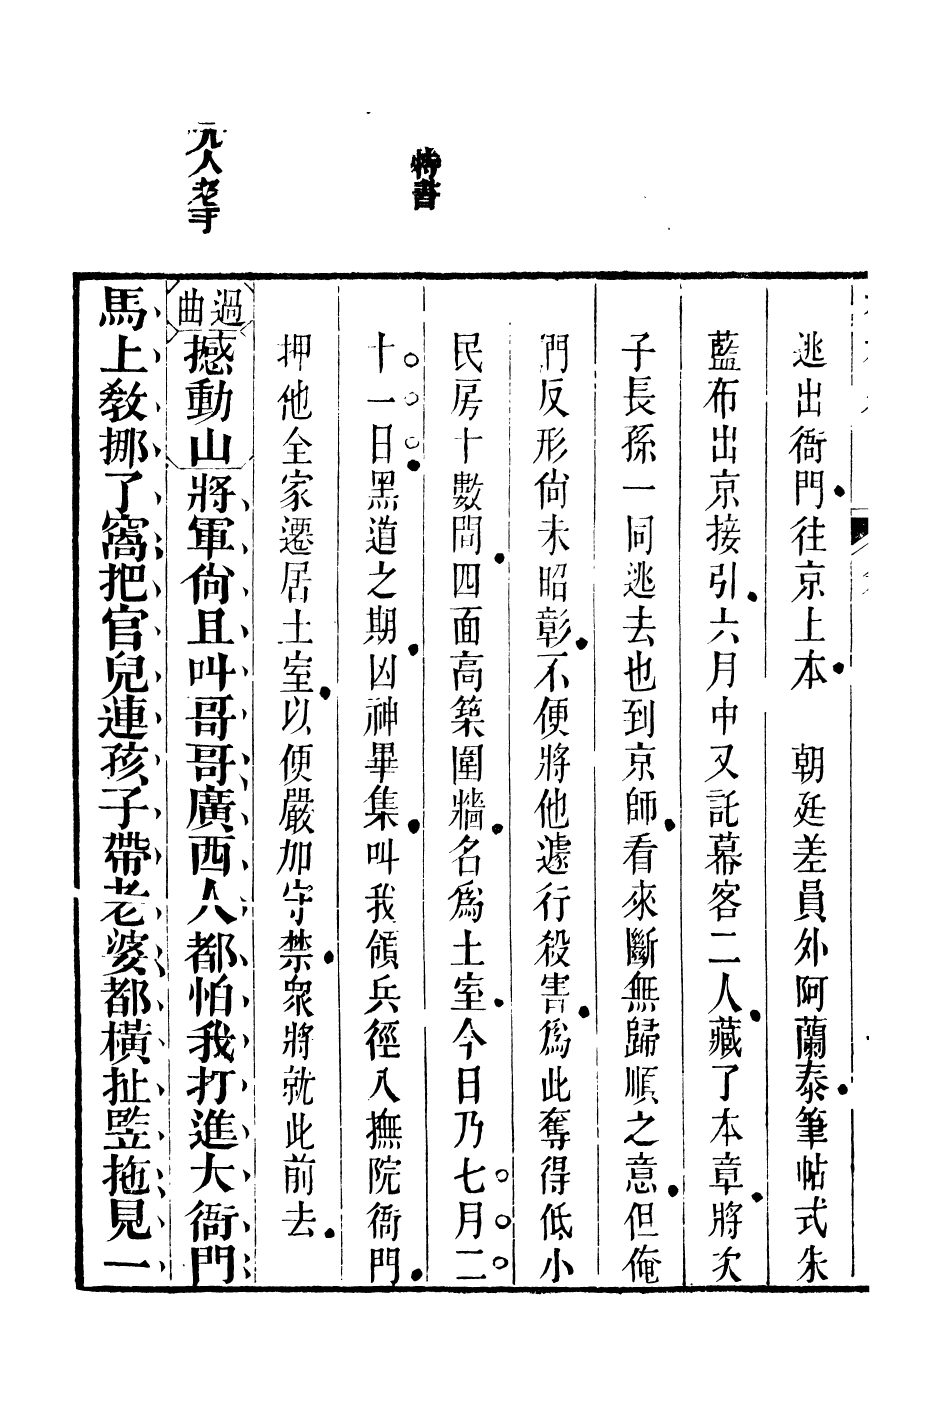 特書
元人老手
逃出衙門往京上本　朝廷差員外阿蘭泰筆帖式朱
藍布出京接引六月中又託幕客二人藏了本章將次
子長孫一同逃去也到京師看來斷無歸順之意但俺
門反形尙未昭彰不便將他遽行殺害爲此奪得低小
民房十數間四面高築圍牆名爲土室今日乃七月二
十一日黑道之期凶神畢集叫我領兵徑入撫院衙門
押他全家遷居土室以便嚴加守禁衆將就此前去
過曲撼動山將軍尙且叫哥哥廣西人都怕我打進大衙門
馬上敎挪了窩把官兒連孩子帶老婆都橫扯竪拖見一